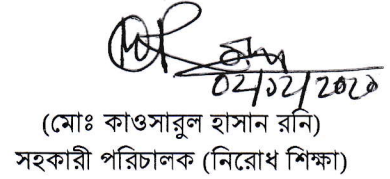 02/02/2020
(মোঃ কাওসারুল হাসান রনি)
সহকারী পরিচালক (নিরোধ শিক্ষা)